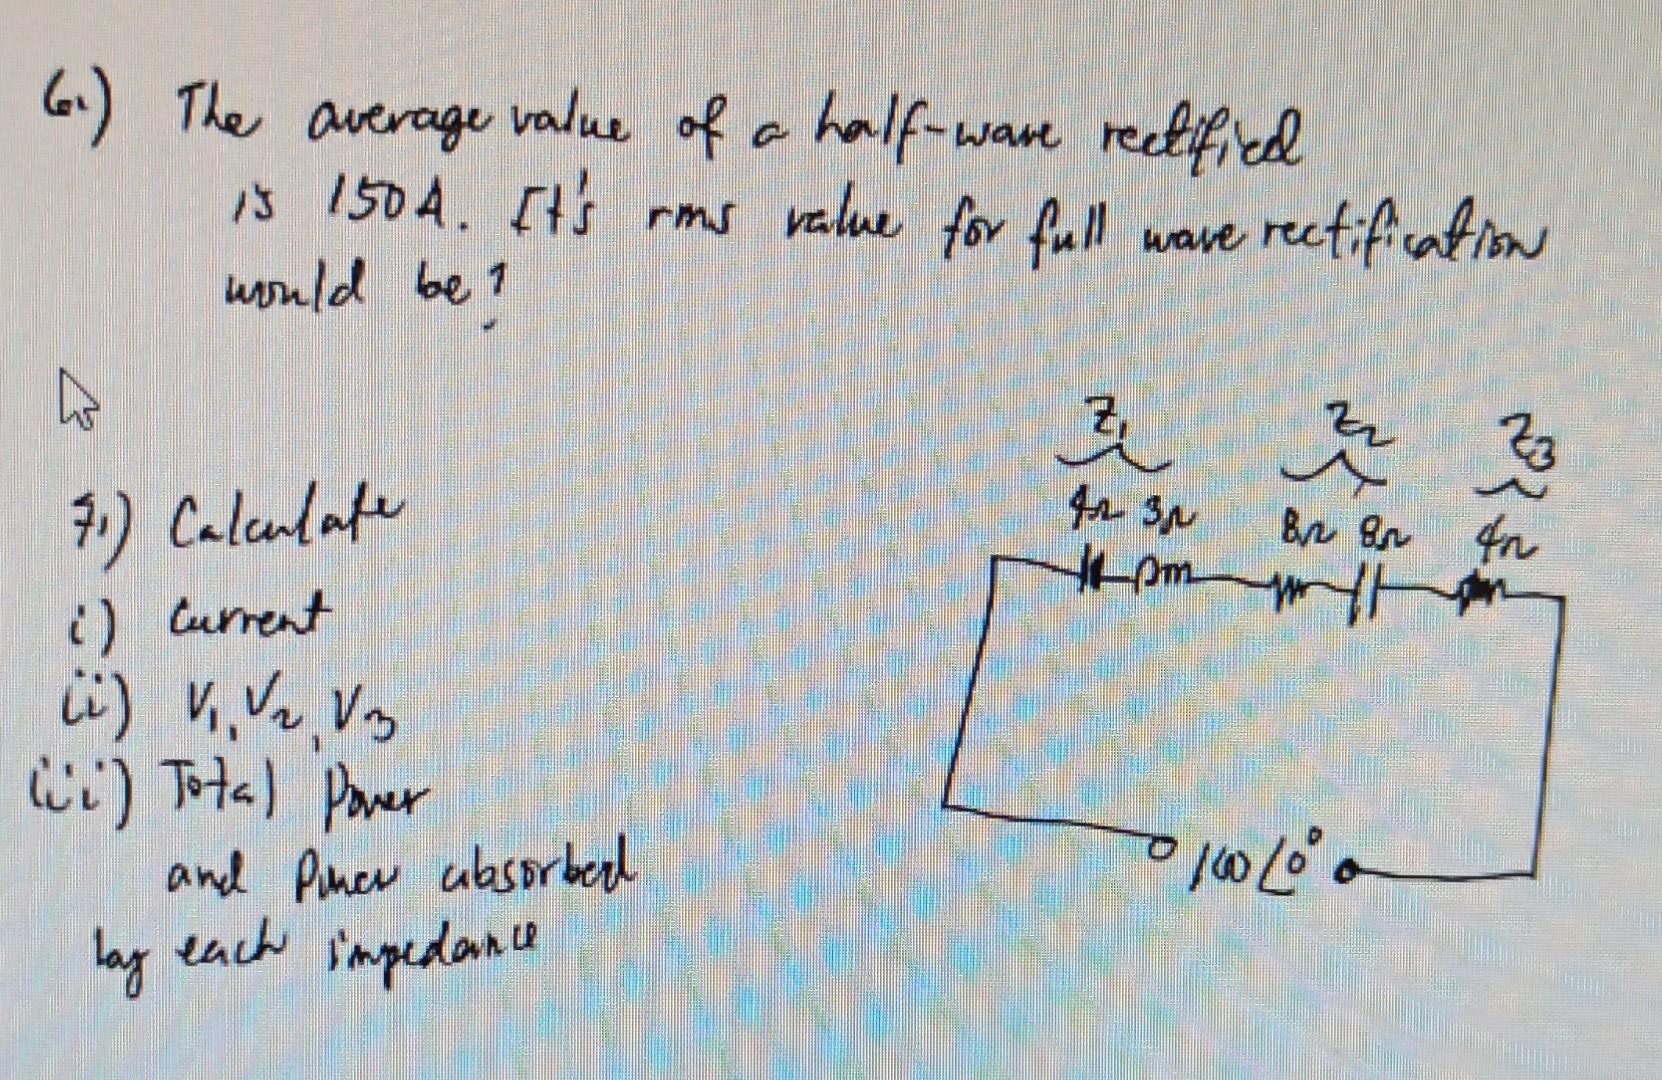 6.) The average value of a half-wave rectified
is 150A. It's rms value for full wave rectification
would be?
7.) Calculate
i) Current
ii) V1, V2, V3
iii) Total Power
and Power absorbed
by each impedance
Z1 Z2 Z3
4Ω 3Ω 8Ω 8Ω 4Ω
100∠0°